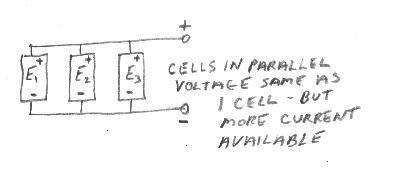 +
+ + +
E1 E2 E3
- - -
-
CELLS IN PARALLEL
VOLTAGE SAME AS
1 CELL - BUT
MORE CURRENT
AVAILABLE